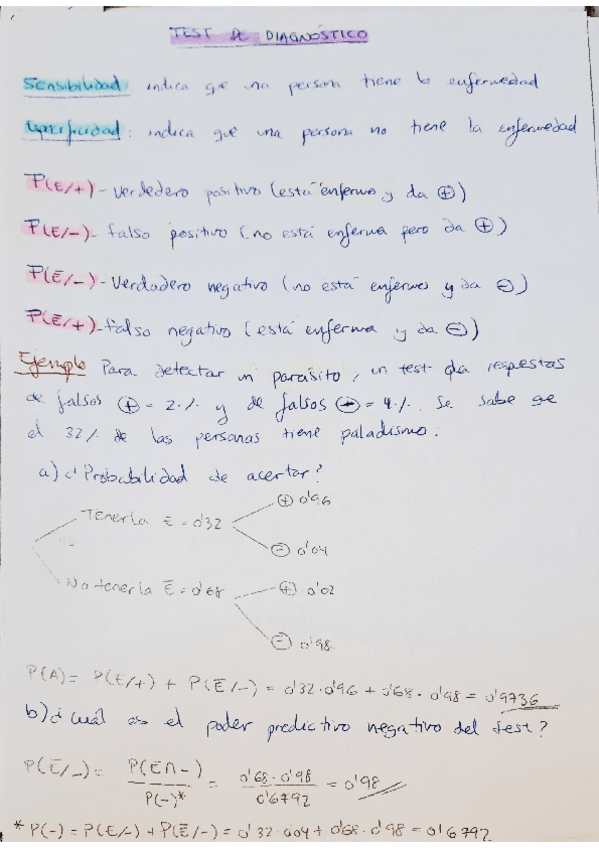 TEST DE DIAGNÓSTICO
Sensibilidad: indica que una persona tiene la enfermedad
Especificidad: indica que una persona no tiene la enfermedad
P(E/+) - Verdedero positivo (está enfermo y da ⊕)
P(E/-) - falso positivo (no está enferma pero da ⊕)
P(Ē/-) - Verdadero negativo (no está enfermo y da ⊖)
P(Ē/+) - falso negativo (está enferma y da ⊖)
Ejemplo Para detectar un parásito, un test da respuestas
de falsos ⊕ = 2% y de falsos ⊖ = 4%. Se sabe que
el 32% de las personas tiene paladismo:
a) ¿Probabilidad de acertar?
⊕ 0'96
Tenerla E = 0'32
⊖ 0'04
No tenerla Ē = 0'68
⊕ 0'02
⊖ 0'98
P(A) = P(E/+) + P(Ē/-) = 0'32·0'96 + 0'68·0'98 = 0'9736
b) ¿Cuál es el poder predictivo negativo del test?
P(Ē/-) = P(Ē∩-) / P(-)* = 0'68·0'98 / 0'6792 = 0'98
* P(-) = P(E/-) + P(Ē/-) = 0'32·0'04 + 0'68·0'98 = 0'6792